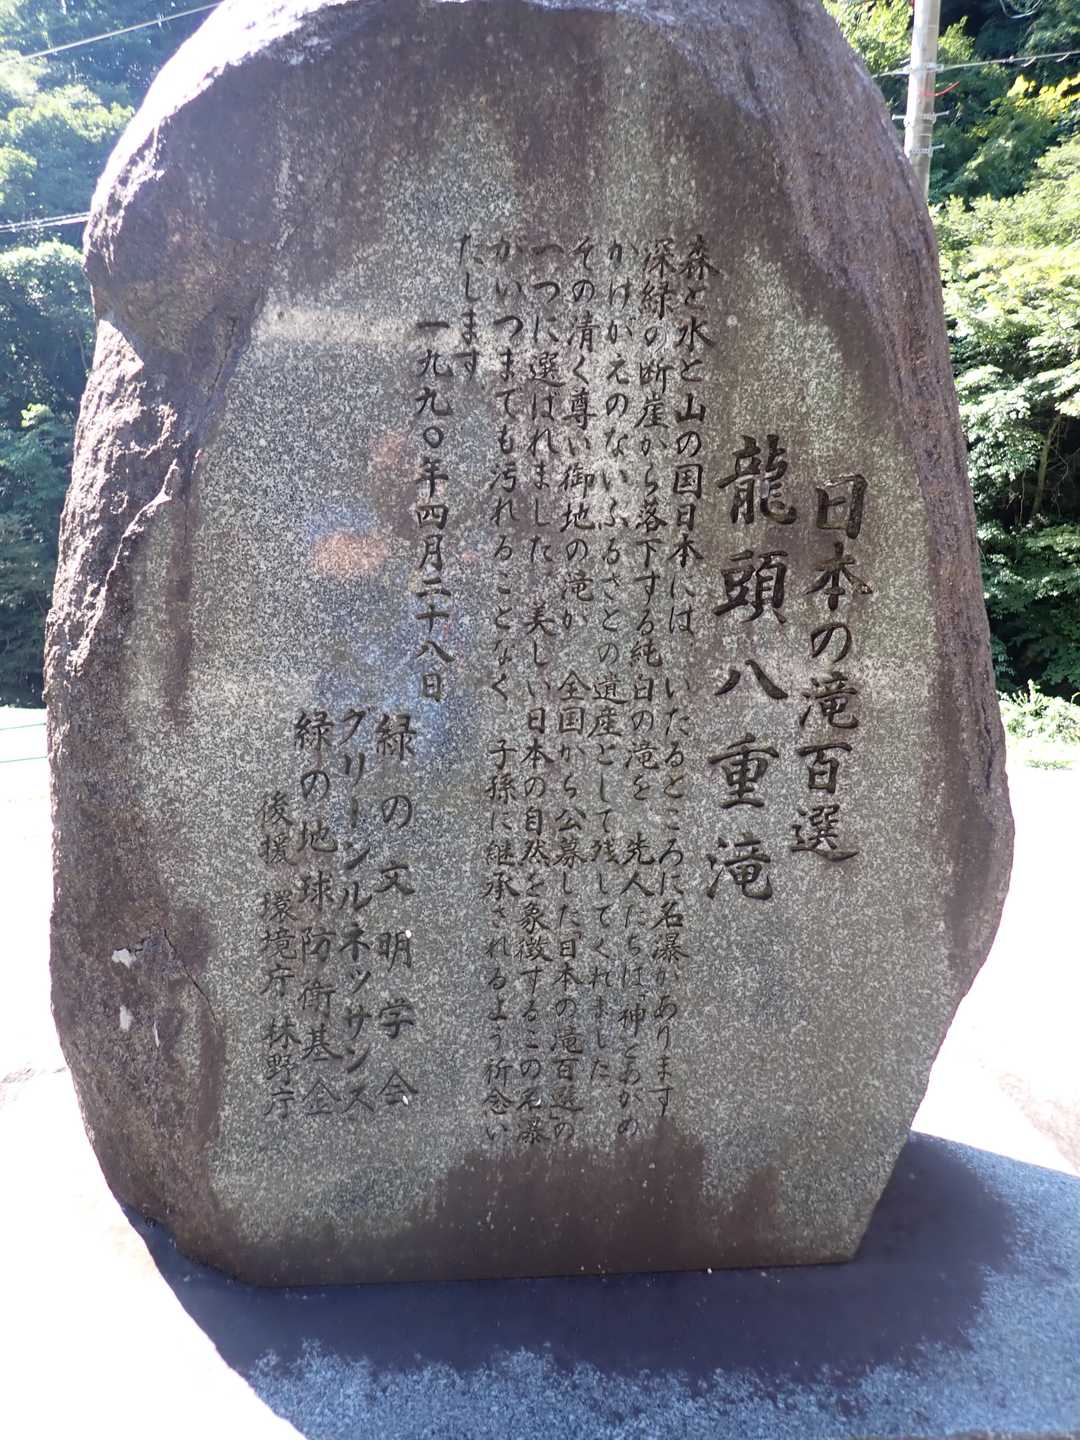 日本の滝百選
龍頭八重滝
森と水と山の国日本には、いたるところに名瀑があります
深緑の断崖から落下する純白の滝を 先人たちは神とあがめ
かけがえのないふるさとの遺産として残してくれました
その清く尊い御地の滝が 全国から公募した「日本の滝百選」の
一つに選ばれました 美しい日本の自然を象徴するこの名瀑
がいつまでも汚れることなく 子孫に継承されるよう祈念い
たします
一九九〇年四月二十八日
緑の文明学会
グリーンルネッサンス
緑の地球防衛基金
後援 環境庁 林野庁